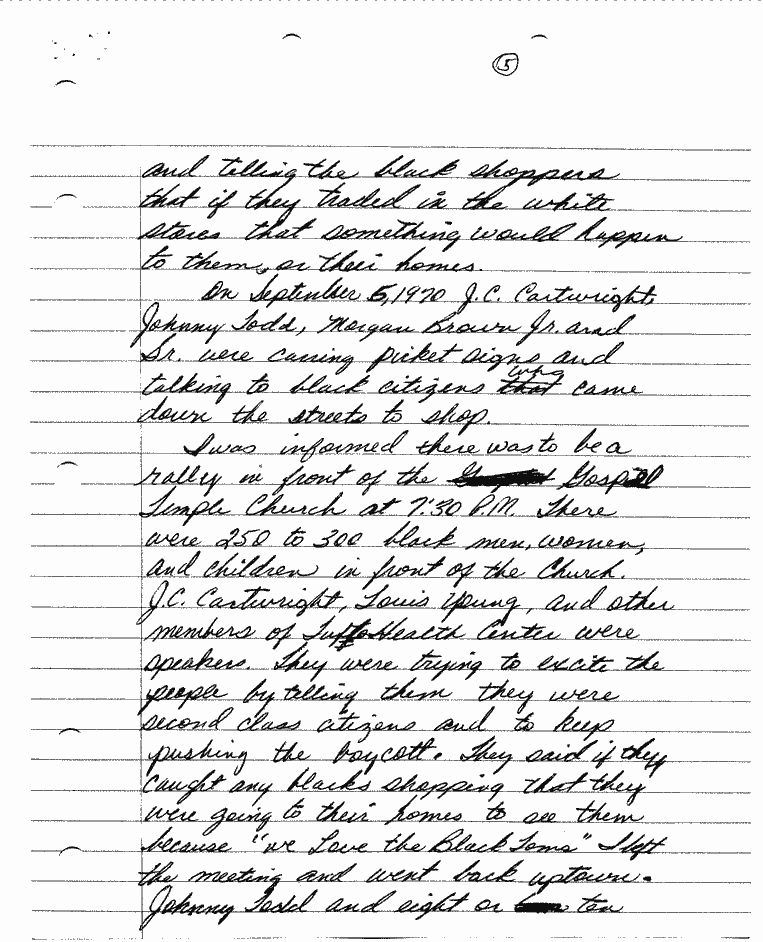 5
and telling the black shoppers
that if they traded in the white
stores that something would happen
to them, or their homes.
On September 5, 1970 J.C. Cartwright,
Johnny Todd, Morgan Brown Jr. and
Sr. were carring picket signs and
who
talking to black citizens that came
down the streets to shop.
I was informed there was to be a
rally in front of the Gospel
Temple Church at 7:30 P.M. There
were 250 to 300 black men, women,
and children in front of the Church.
J.C. Cartwright, Louis Young, and other
members of Tufts Health Center were
speakers. They were trying to excite the
people by telling them they were
second class citizens and to keep
pushing the boycott. They said if they
caught any blacks shopping that they
were going to their homes to see them
because "we Love the Black Toms" I left
the meeting and went back uptown.
Johnny Todd and eight or ten